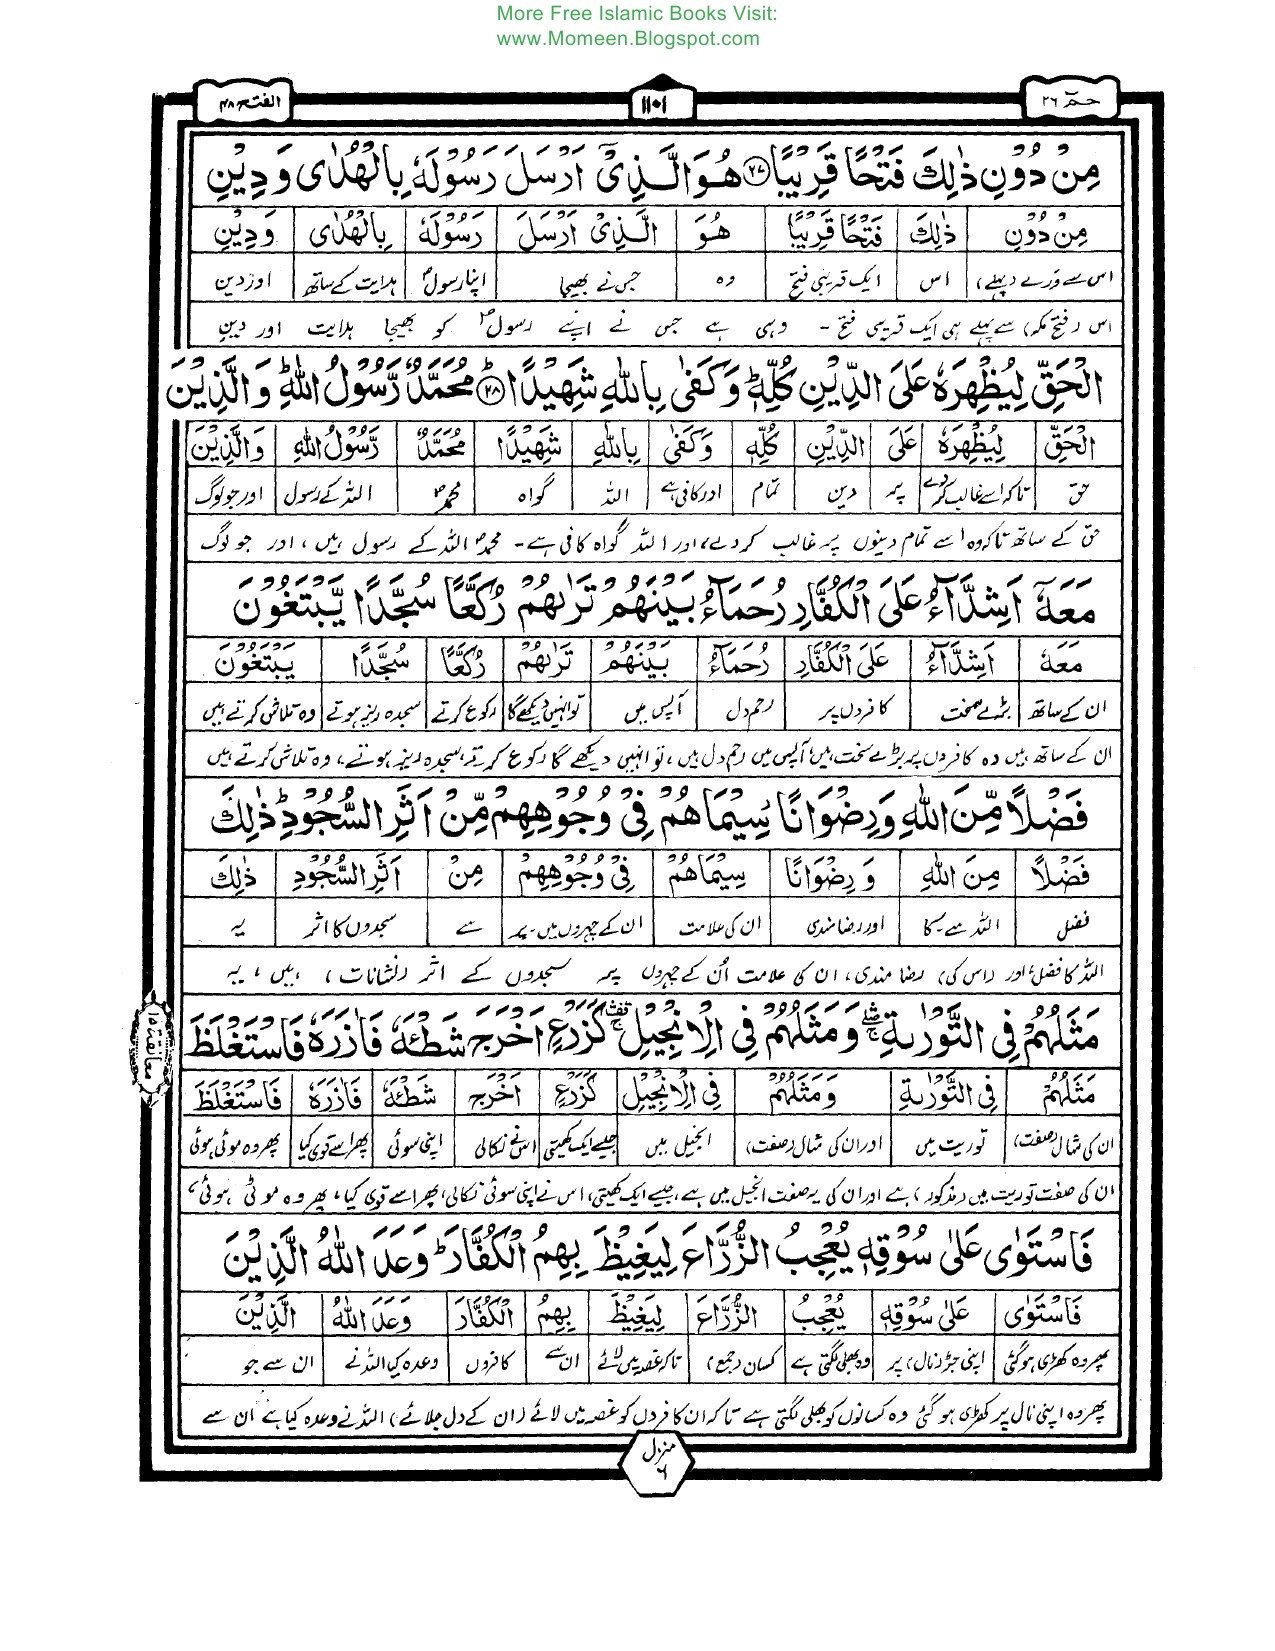 More Free Islamic Books Visit:
www.Momeen.Blogspot.com
حٰمٓ ۲۶
۱۱۰۱
الفتح ۴۸
مِنۡ دُوۡنِ ذٰلِكَ فَتۡحًا قَرِيۡبًا ﴿۲۷﴾ هُوَ الَّذِىۡۤ اَرۡسَلَ رَسُوۡلَهٗ بِالۡهُدٰى وَ دِيۡنِ
مِنۡ دُوۡنِ | ذٰلِكَ | فَتۡحًا قَرِيۡبًا | هُوَ | الَّذِىۡۤ اَرۡسَلَ | رَسُوۡلَهٗ | بِالۡهُدٰى | وَ دِيۡنِ
اس سے ورے (پہلے) | اس | ایک قریبی فتح | وہ | جس نے بھیجا | اپنا رسولؐ | ہدایت کے ساتھ | اور دین
اس (فتح مکہ) سے پہلے ہی ایک قریبی فتح ۔ وہی ہے جس نے اپنے رسولؐ کو بھیجا ہدایت اور دینِ
الۡحَقِّ لِيُظۡهِرَهٗ عَلَى الدِّيۡنِ كُلِّهٖ ؕ وَ كَفٰى بِاللّٰهِ شَهِيۡدًا ﴿۲۸﴾ مُحَمَّدٌ رَّسُوۡلُ اللّٰهِ ؕ وَ الَّذِيۡنَ
الۡحَقِّ | لِيُظۡهِرَهٗ | عَلَى | الدِّيۡنِ | كُلِّهٖ | وَ كَفٰى | بِاللّٰهِ | شَهِيۡدًا | مُحَمَّدٌ | رَّسُوۡلُ اللّٰهِ | وَ الَّذِيۡنَ
حق | تاکہ اسے غالب کردے | پر | دین | تمام | اور کافی ہے | اللہ | گواہ | محمدؐ | اللہ کے رسول | اور جو لوگ
حق کے ساتھ تاکہ وہ اسے تمام دینوں پر غالب کر دے، اور اللہ گواہ کافی ہے ۔ محمدؐ اللہ کے رسول ہیں، اور جو لوگ
مَعَهٗۤ اَشِدَّآءُ عَلَى الۡكُفَّارِ رُحَمَآءُ بَيۡنَهُمۡ تَرٰٮهُمۡ رُكَّعًا سُجَّدًا يَّبۡتَغُوۡنَ
مَعَهٗ | اَشِدَّآءُ | عَلَى الۡكُفَّارِ | رُحَمَآءُ | بَيۡنَهُمۡ | تَرٰٮهُمۡ | رُكَّعًا | سُجَّدًا | يَبۡتَغُوۡنَ
ان کے ساتھ | بڑے سخت | کافروں پر | رحم دل | آپس میں | تو انہیں دیکھے گا | رکوع کرتے | سجدہ ریز ہوتے | وہ تلاش کرتے ہیں
ان کے ساتھ ہیں وہ کافروں پر بڑے سخت ہیں، آپس میں رحم دل ہیں، تو انہیں دیکھے گا رکوع کرتے، سجدہ ریز ہوتے، وہ تلاش کرتے ہیں
فَضۡلًا مِّنَ اللّٰهِ وَ رِضۡوَانًا سِيۡمَاهُمۡ فِىۡ وُجُوۡهِهِمۡ مِّنۡ اَثَرِ السُّجُوۡدِ ؕ ذٰلِكَ
فَضۡلًا | مِنَ اللّٰهِ | وَ رِضۡوَانًا | سِيۡمَاهُمۡ | فِىۡ وُجُوۡهِهِمۡ | مِنۡ | اَثَرِ السُّجُوۡدِ | ذٰلِكَ
فضل | اللہ سے ۔ کا | اور رضامندی | ان کی علامت | ان کے چہروں میں ۔ پر | سے | سجدوں کا اثر | یہ
اللہ کا فضل، اور (اس کی) رضا مندی، ان کی علامت اُن کے چہروں پر سجدوں کے اثر (نشانات) ہیں، یہ
مَثَلُهُمۡ فِى التَّوۡرٰٮةِ ۛۖ وَ مَثَلُهُمۡ فِى الۡاِنۡجِيۡلِ ۛۚ كَزَرۡعٍ اَخۡرَجَ شَطۡئَهٗ فَاٰزَرَهٗ فَاسۡتَغۡلَظَ
معانقة ۱۵
مَثَلُهُمۡ | فِى التَّوۡرٰٮةِ | وَ مَثَلُهُمۡ | فِى الۡاِنۡجِيۡلِ | كَزَرۡعٍ | اَخۡرَجَ | شَطۡئَهٗ | فَاٰزَرَهٗ | فَاسۡتَغۡلَظَ
ان کی مثال (صفت) | توریت میں | اور ان کی مثال (صفت) | انجیل میں | جیسے ایک کھیتی | اس نے نکالی | اپنی سوئی | پھر اسے قوی کیا | پھر وہ موٹی ہوئی
ان کی صفت توریت میں (مذکور) ہے اور ان کی یہ صفت انجیل میں ہے، جیسے ایک کھیتی، اس نے اپنی سوئی نکالی، پھر اسے قوی کیا، پھر وہ موٹی ہوئی،
فَاسۡتَوٰى عَلٰى سُوۡقِهٖ يُعۡجِبُ الزُّرَّاعَ لِيَغِيۡظَ بِهِمُ الۡكُفَّارَ ؕ وَعَدَ اللّٰهُ الَّذِيۡنَ
فَاسۡتَوٰى | عَلٰى سُوۡقِهٖ | يُعۡجِبُ | الزُّرَّاعَ | لِيَغِيۡظَ | بِهِمُ | الۡكُفَّارَ | وَعَدَ اللّٰهُ | الَّذِيۡنَ
پھر وہ کھڑی ہوگئی | اپنی جڑ (نال) پر | وہ بھلی لگتی ہے | کسان (جمع) | تاکہ غصہ میں لائے | ان سے | کافروں | وعدہ کیا اللہ نے | ان سے جو
پھر وہ اپنی نال پر کھڑی ہو گئی وہ کسانوں کو بھلی لگتی ہے تاکہ ان کافروں کو غصہ میں لائے (ان کے دل جلائے) اللہ نے وعدہ کیا ہے ان سے
منزل ۶